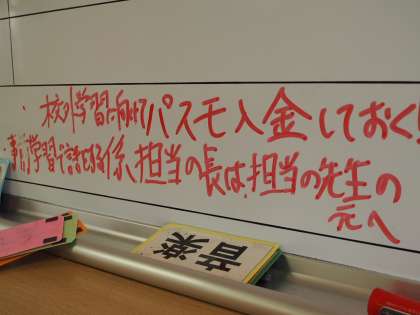 ・校外学習に向けてパスモ入金しておく!
事前学習で諸々係、担当の長は、担当の先生の
元へ
音楽